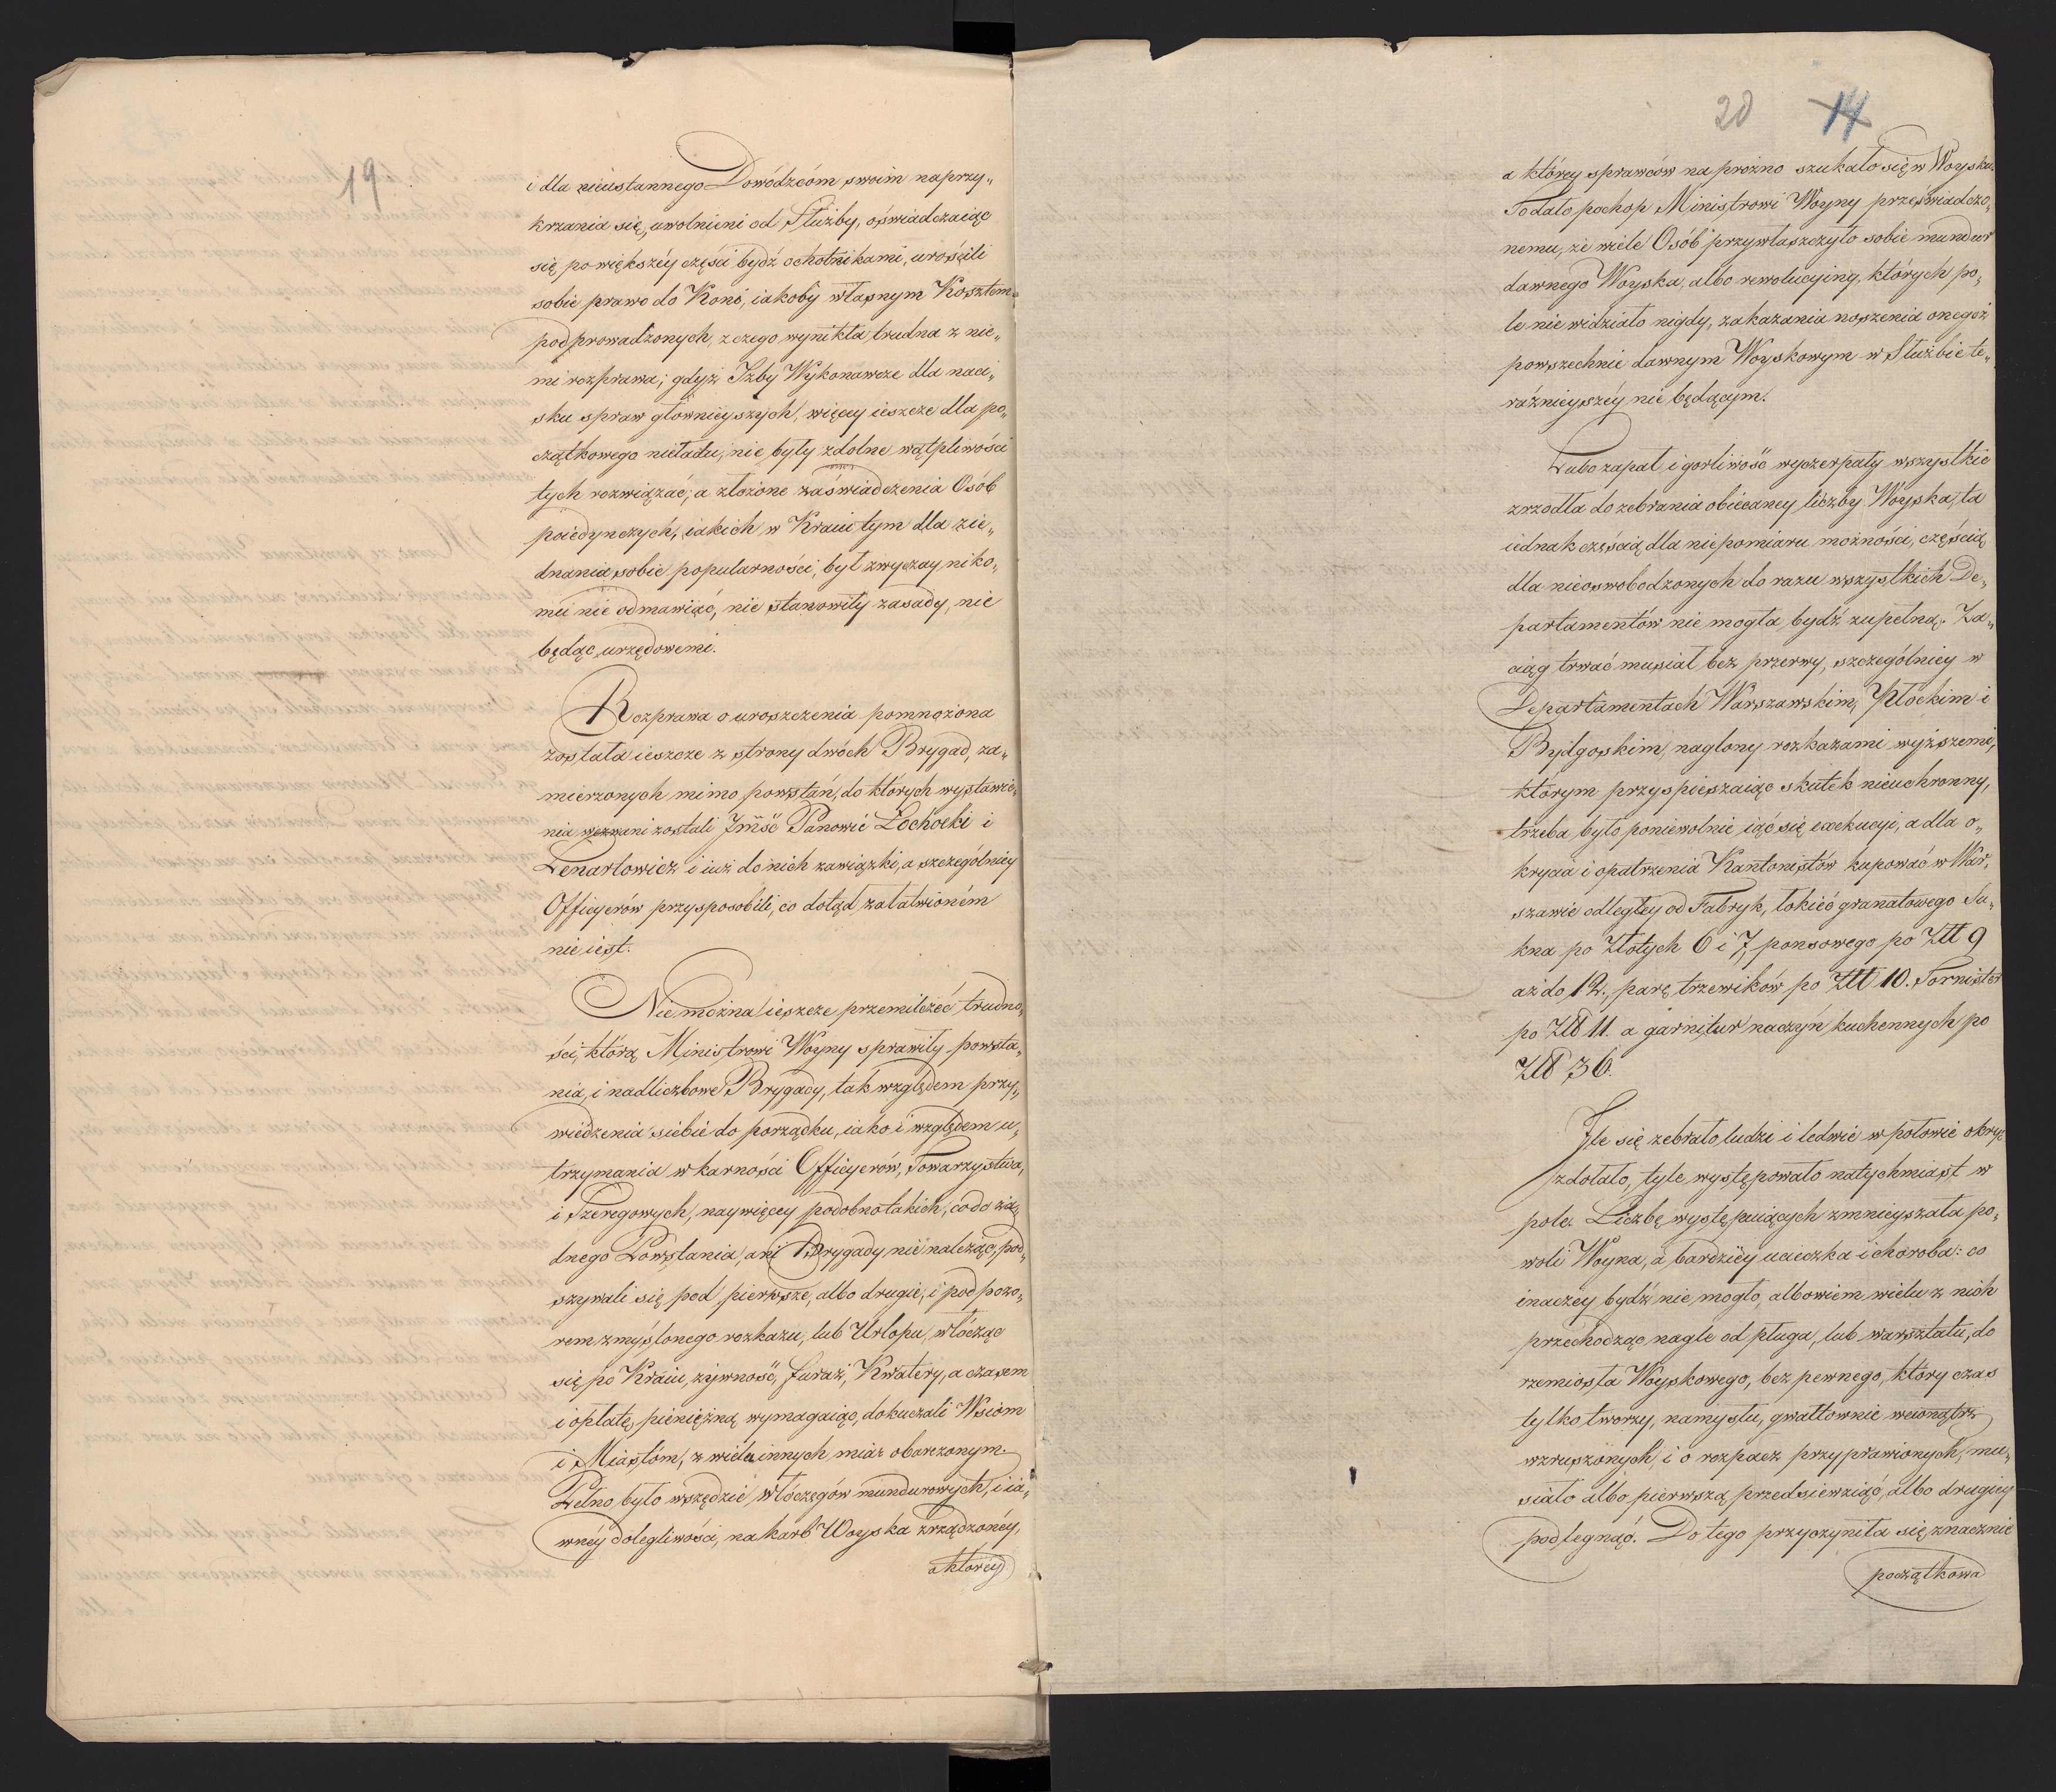 19
i dla nieustannego Dowódzcóm swoim naprzy„
krzania się, uwolnieni od Służby, oświadczaiąc
się po większéy części bydź ochotnikami, urościli
sobie prawo do Koni, iakoby własnym Kosztem
podprowadzonych, z czego wynikła trudna z nie„
mi rozprawa; gdyż Izby Wykonawcze dla naci„
sku spraw głownieyszych, więcey ieszcze dla po„
czątkowego nieładu, nie były zdolne wątpliwości
tych rozwiązać; a złożone zaświadczenia Osób
poiedynczych, iakich w Kraiu tym dla zie„
dnania sobie popularności, był zwyczay niko„
mu nie odmawiać, nie stanowiły zasady, nie
będąc urzędowemi.
Rozprawa o uroszczenia pomnożona
została ieszcze z strony dwóch Brygad, za„
mierzonych mimo powstań, do których wystawie„
nia wezwani zostali Jmść Panowie Łochocki i
Lenartowicz i iuż do nich zawiązki, a szczególniey
Officyerów przysposobili, co dotąd załatwioném
nie iest.
Nie można ieszcze przemilczéć trudno„
ści, którą Ministrowi Woyny sprawiły powsta„
nia, i nadliczbowe Brygady, tak względem przy„
wiedzenia siebie do porządku, iako i względem u„
trzymania w karności Officyerów, Towarzystwa,
i Szeregowych, naywięcey podobno takich, co do ża„
dnego Powstania, ani Brygady nie należąc, pod„
szywali się pod pierwsze, albo drugie, i pod pozo„
rem zmyślonego rozkazu, lub Urlopu, włócząc
się po Kraiu, żywność, furaż, Kwatery, a czasem
i opłatę pieniężną wymagaiąc, dokuczali Wsiom
i Miastóm, z wielu innych miar obarczonym.
Pełno było wszędzie włóczęgów mundurowych, i ia„
wnéy dolegliwości, na karb Woyska zrządzonéy,
a któréy
20 14
a któréy sprawców na prożno szukało się w Woysku.
To dało pochop Ministrowi Woyny przeświadczo„
nemu, że wiele Osób przywłaszczyło sobie mundur
dawnego Woyska, albo rewolucyiny, których po„
le nie widziało nigdy, zakazania noszenia onegoż
powszechnie dawnym Woyskowym w Służbie te„
raźnieyszéy nie będącym.
Lubo zapał i gorliwość wyczerpały wszystkie
zrzodła do zebrania obiecaney liczby Woyska, ta
iednak częścią dla niepomiaru możności, częścią
dla nieoswobodzonych do razu wszystkich De„
partamentów nie mogła bydź zupełną. Za„
ciąg trwać musiał bez przerwy, szczególniey w
Departamentach Warszawskim, Płockim i
Bydgoskim, naglony rozkazami wyższemi,
którym przyspieszaiąc skutek nieuchronny,
trzeba było poniewolnie iąć się exekucyi, a dla o„
krycia i opatrzenia Kantonistów kupować w War„
szawie odległey od Fabryk, łokieć granatowego Su„
kna po Złotych 6 i 7, ponsowego po Złt 9
aż do 12., parę trzewików po Złt 10. Tornister
po Złt 11. a garnitur naczyń kuchennych po
Złt 36.
Ile się zebrało ludzi i ledwie w połowie okryć
zdołało, tyle występowało natychmiast w
pole. Liczbę występuiących zmnieyszała po„
woli Woyna, a bardziéy ucieczka i choroba: co
inaczey bydź nie mogło, albowiem wielu z nich
przechodząc nagle od pługa, lub warsztatu, do
rzemiosła Woyskowego, bez pewnego, który czas
tylko tworzy, namysłu, gwałtownie wewnątrz
wzruszonych, i o rozpacz przyprawionych, mu„
siało albo pierwszą przedsiewziąć, albo drugiey
podlegnąć. Do tego przyczyniła się znacznie
początkowa